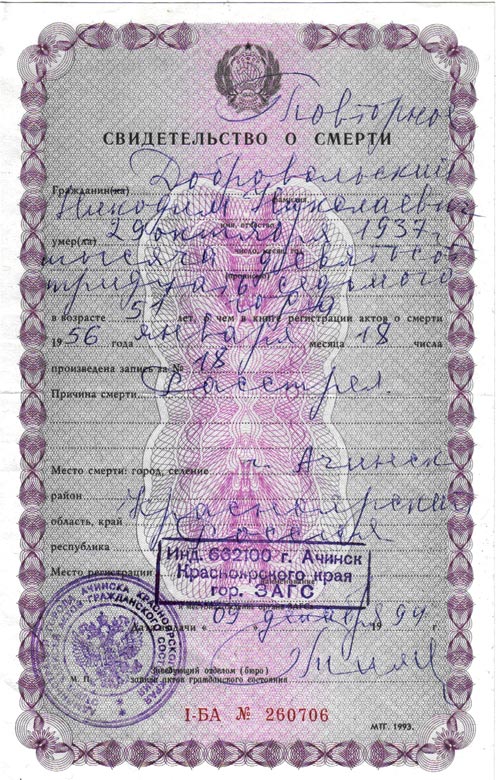 Повторное
СВИДЕТЕЛЬСТВО О СМЕРТИ
Добровольский
Гражданин(ка)
фамилия
Никодим Николаевич
имя, отчество
умер(ла) 29 октября 1937
число, месяц, год
тысяча девятьсот
тридцать седьмого
года
в возрасте 5 лет, о чем в книге регистрации актов о смерти
1956 года января месяца 18 числа
произведена запись за № 18
Причина смерти Расстрел
Место смерти: город, селение г. Ачинск
район
Красноярский
область, край
Россия
республика
Место регистрации
Инд. 662100 г. Ачинск
Красноярского края
гор. ЗАГС
Дата выдачи « 09 » декабря 1994 г.
М. П.
Заведующий отделом (бюро)
записи актов гражданского состояния
I-БА № 260706
МТГ. 1993.